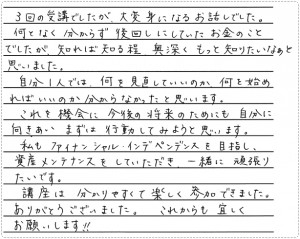 3回の受講でしたが、大変身になるお話しでした。
何となく分からず後回しにしていたお金のこと
でしたが、知れば知る程 奥深く もっと知りたいなぁと
思いました。
自分1人では、何を見直していいのか 何を始め
ればいいのか分からなかったと思います。
これを機会に今後の将来のためにも自分に
向きあい まずは行動してみようと思います。
私もファイナンシャル・インデペンデンスを目指し、
資産メンテナンスをしていただき、一緒に頑張り
たいです。
講座は 分かりやすくて楽しく参加できました。
ありがとうございました。これからも宜しく
お願いします!!